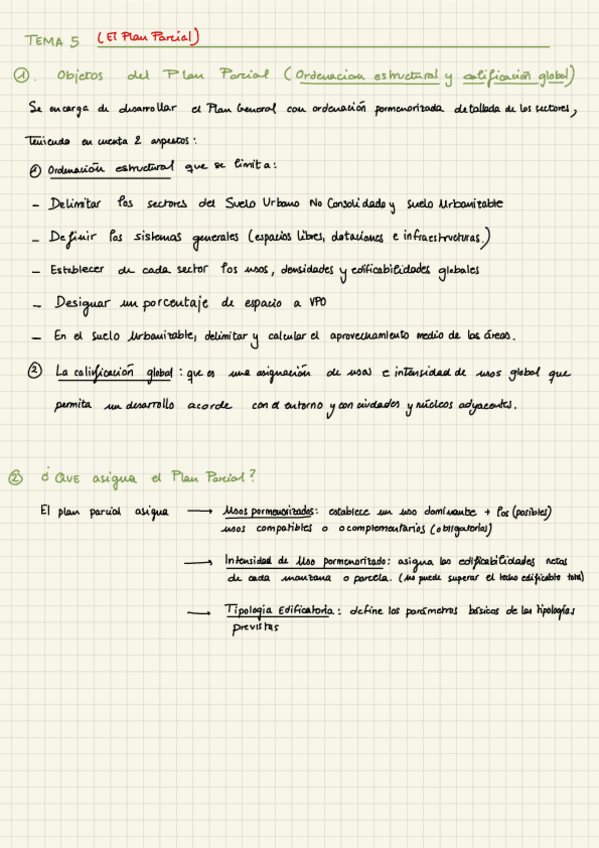 TEMA 5 (El Plan Parcial)
①. Objetos del Plan Parcial (Ordenacion estructural y calificación global)
Se encarga de desarrollar el Plan General con ordenación pormenorizada detallada de los sectores,
Teniendo en cuenta 2 aspectos:
① Ordenación estructural que se limita:
- Delimitar los sectores del Suelo Urbano No Consolidado y Suelo Urbanizable
- Definir los sistemas generales (espacios libres, dotaciones e infraestructuras.)
- Establecer de cada sector los usos, densidades y edificabilidades globales
- Designar un porcentaje de espacio a VPO
- En el Suelo Urbanizable, delimitar y calcular el aprovechamiento medio de las áreas.
② La calificación global: que es una asignación de usos e intensidad de usos global que
permita un desarrollo acorde con el entorno y con ciudades y núcleos adyacentes.
② ¿ QUE asigna el Plan Parcial?
El plan parcial asigna → Usos pormenorizados: establece un uso dominante + los (posibles)
usos compatibles o o complementarios (obligatorios)
→ Intensidad de Uso pormenorizado: asigna las edificabilidades netas
de cada manzana o parcela. (No puede superar el techo edificable total)
→ Tipologia Edificatoria: define los parámetros básicos de las tipologías
previstas